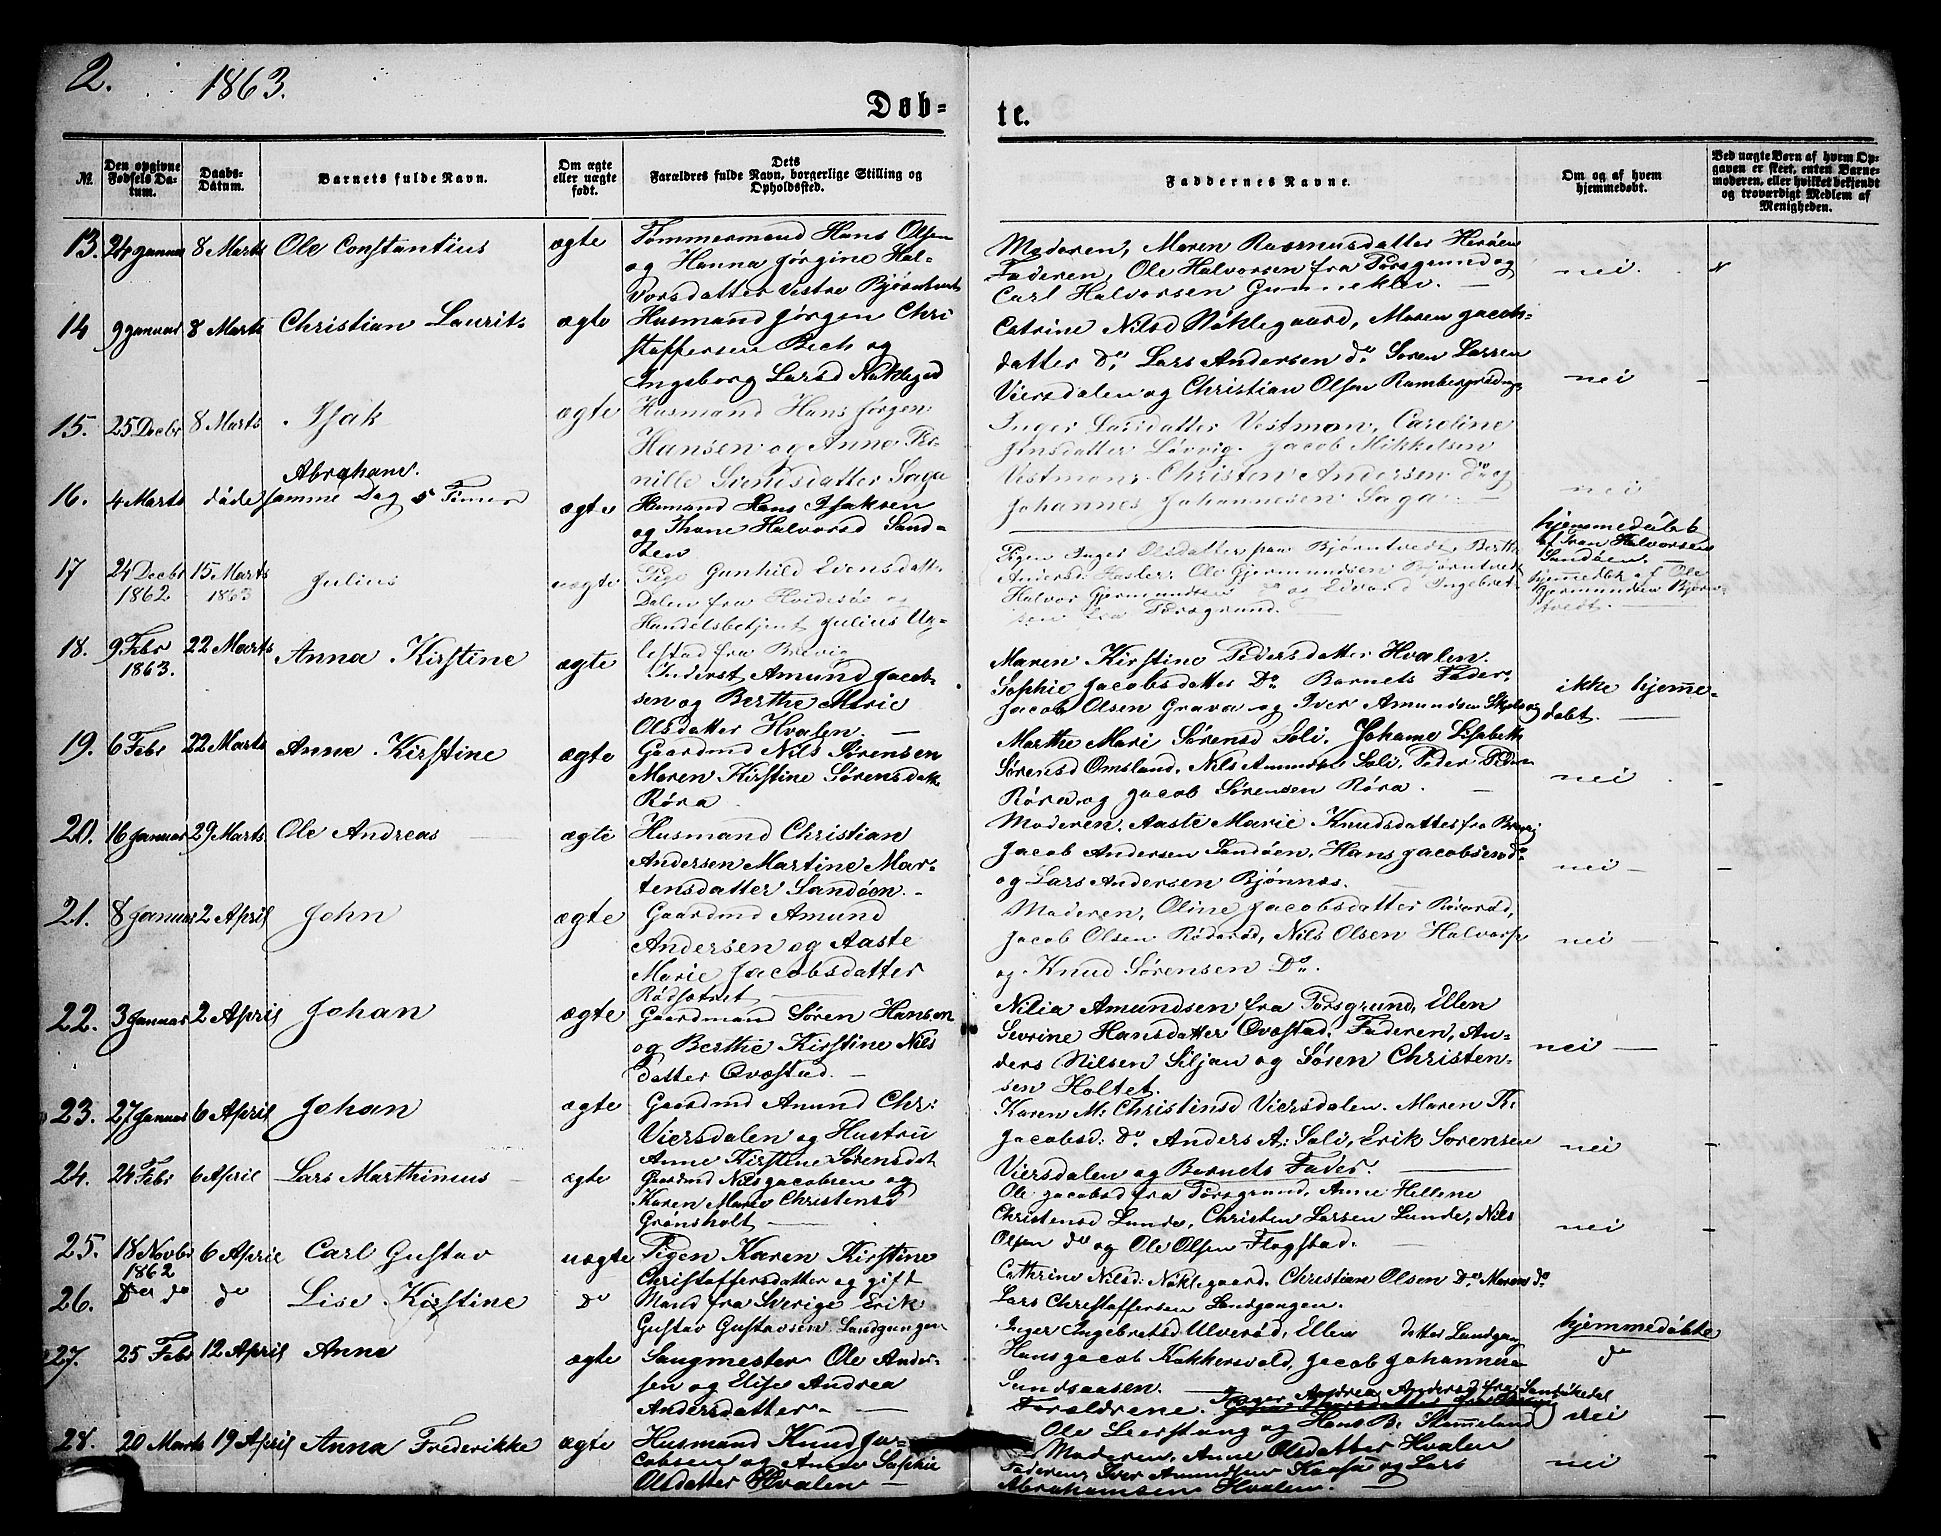 2.
1863.
Døb-
te.
№.
Den opgivne Fødsels Datum.
Daabs-Datum.
Barnets fulde Navn.
Om ægte eller uægte født.
Dets Forældres fulde Navn, borgerlige Stilling og Opholdssted.
Faddernes Navne.
Om og af hvem hjemmedøbt.
Ved uægte Børn af hvem Opgaven er skeet, enten Barnemoderen, eller hvilket bekjendt og troværdigt Medlem af Menigheden.
13. 24 Januar 8 Marts Ole Constantius ægte
Tømmermand Hans Olsen
og Hanna Jørgine Hal-
vorsdatter Vestre
Moderen, Maren Rasmusdatter Herøen
Faderen, Ole Halvorsen fra Porsgrund og
Carl Halvorsen Gunneklev. —
nei.
14 9 Januar 8 Marts Christian Laurits ægte
Husmand Jørgen Chri
stoffersen Bech og
Ingeborg Larsd Nøklegd
Catrine Nilsd Nøklegaard, Maren Jacob-
datter do, Lars Andersen do Søren Larsen
Viersdalen og Christian Olsen
nei
15. 25 Decbr 8 Marts Isak ægte
Husmand Hans Jørgen
Hansen og Anne Per-
nille Saga
Inger Larsdatter Vestmon, Caroline
Jønsdatter Løvvig. Jacob Mikkelsen
Vestmon, Christen Andersen do og
Johannes Johannesen Saga. —
nei
16. 4 Marts døde samme Dag 5 Timer
Abrahane.
ægte
Husmand Hans Isaksen
og Thone Halvorsd Sand-
øen
hjemmedøbt
af Halvorsen
Sandøen. —
17 24 Decbr 15 Marts Julius uægte
1862 1863
Pige Gunhild Evensdatter
Dalen fra Hvidesøe og
Handelsbetjent Julius Ug-
lestad fra Brevig
Pigen Inger Olsdatter paa Bjørntvedt, Berthe
Andersd Hesler, Ole Gjermundsen Bjørntvedt
Halvor Gjermundsen do og Edvard Ingebret-
sen fra Porsgrund. —
hjemmedbt af Ole
Gjermundsen Bjørn-
tvedt.
18. 9 Febr 22 Marts Anna Kirstine ægte
1863.
Inderst Amund Jacob-
sen og Berthe Marie
Olsdatter Hvalen. —
Maren Kirstine Pedersdatter Hvalen.
Sophie Jacobsdatter Do Barnets Fader,
Jacob Olsen Grava og Iver Amundsen
ikke hjemme-
døbt. —
19. 6 Febr 22 Marts Anne Kirstine ægte
Gaardmd Nils Sørensen
Maren Kirstine Sørensdatt
Røra
Marthe Mari Sørensd Soli. Johanne Lisbeth
Sørensd Omsland, Nils Amundsen Soli, Peder
Røra og Jacob Sørensen Røra. —
nei
20. 16 Januar 29 Marts Ole Andreas ægte
Husmand Christian
Andersen Martine Mar-
tensdatter Sandøen. -
Moderen, Aaste Marie Knudsdatter fra Brevig
Jacob Andersen Sandøen, Hans Jacobsen do
og Lars Andersen Bjønnes.
nei —
21. 8 Januar 2 April John ægte
Gaardmd Amund
Andersen og Aaste
Marie Jacobsdatter
Rødsætret —
Moderen, Oline Jacobsdatter
Jacob Olsen Røderød, Nils Olsen
og Knud Sørensen Do.
nei —
22. 3 Januar 2 April Johan ægte
Gaardmand Søren Hansen
og Berthe Kirstine Nils
datter Qvæstad. —
Nilia Amundsen fra Porsgrund, Ellen
Sevrine Hansdatter Qvæstad, Faderen, An-
ders Nilsen Siljan og Søren Christen-
sen Holtet.
nei —
23. 27 Januar 6 April Johan ægte
Gaardmd Amund Chr:
Viersdalen og Hustru
Anne Kirstine Sørensdat
Karen M: Christensd Viersdalen. Maren K:
Jacobsd: do. Anders A: Soli, Erik Sørensen
Viersdalen og Barnets Fader. —
nei
24. 24 Febr 6 April Lars Marthinius ægte
Gaardmd Nils Jacobsen og
Karen Marie Christensd
Grønsholt —
Ole Jacobsd fra Porsgrund, Anne Hellene
Christensd Lunde, Christen Larsen Lunde, Nils
Olsen do og Ole Olsen Flogstad.
nei
25. 18 Novbr 6 April Carl Gustav uægte
1862
Pigen Karen Kirstine
Christoffersdatter og gift
Mand fra Sverige Erik
Gustav Gustavsen Landgangen
Cathrine Nilsd: Nøklegaard. Christian Olsen Do. Maren do.
Lars Christoffersen Landgangen.
26. do do Lise Kirstine Do
Inger Ingebretsd Ulverød, Ellen datter Landgang
Hans Jacob Kokkersvold, Jacob Johannesen
Sundsaasen. —
hjemmedøbte
do
27. 25 Feb 12 April Anne ægte
Saugmester Ole Ander-
sen og Elise Andrea
Andersdatter —
Forældrene. Inger Andrea Andersd fra
Ole Leerstang og Hans B: Stammeland
nei
28. 20 Marts 19 April Anna Frederikke ægte
Husmand Knud Ja-
cobsen og Anne Sophie
Olsdatter Hvalen —
Moderen, Anne Olsdatter Hvalen
Faderen, Iver Amundsen Kaasa og Lars
Abrahamsen Hvalen. —
nei